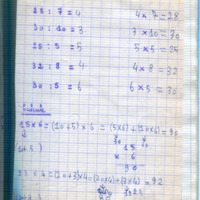 28 : 7 = 4    4 x 7 = 28
30 : 10 = 3    3 x 10 = 30
25 : 5 = 5    5 x 5 = 25
32 : 8 = 4    4 x 8 = 32
30 : 5 = 6    6 x 5 = 30
15 x 6 = (10+5) x 6 = (5x6)+(10x6) = 90
15
x 6
90
23 x 4 = (20+3)x4 = (20x4)+(3x4) = 92